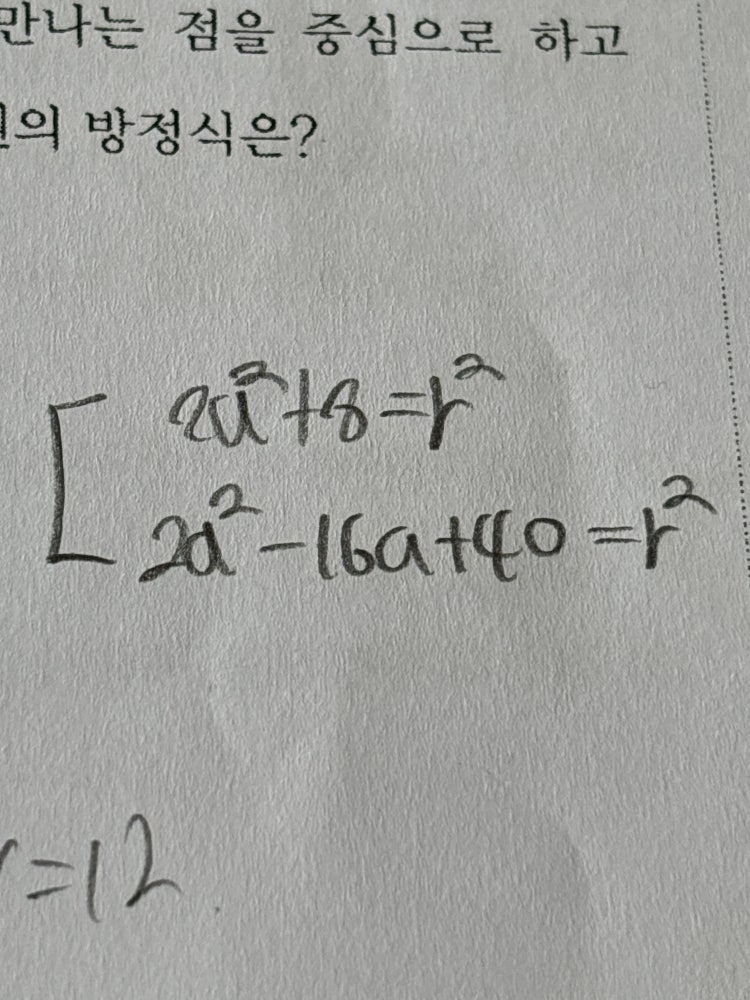 만나는 점을 중심으로 하고
의 방정식은?
2a²+8=r²
2a²-16a+40=r²
=12